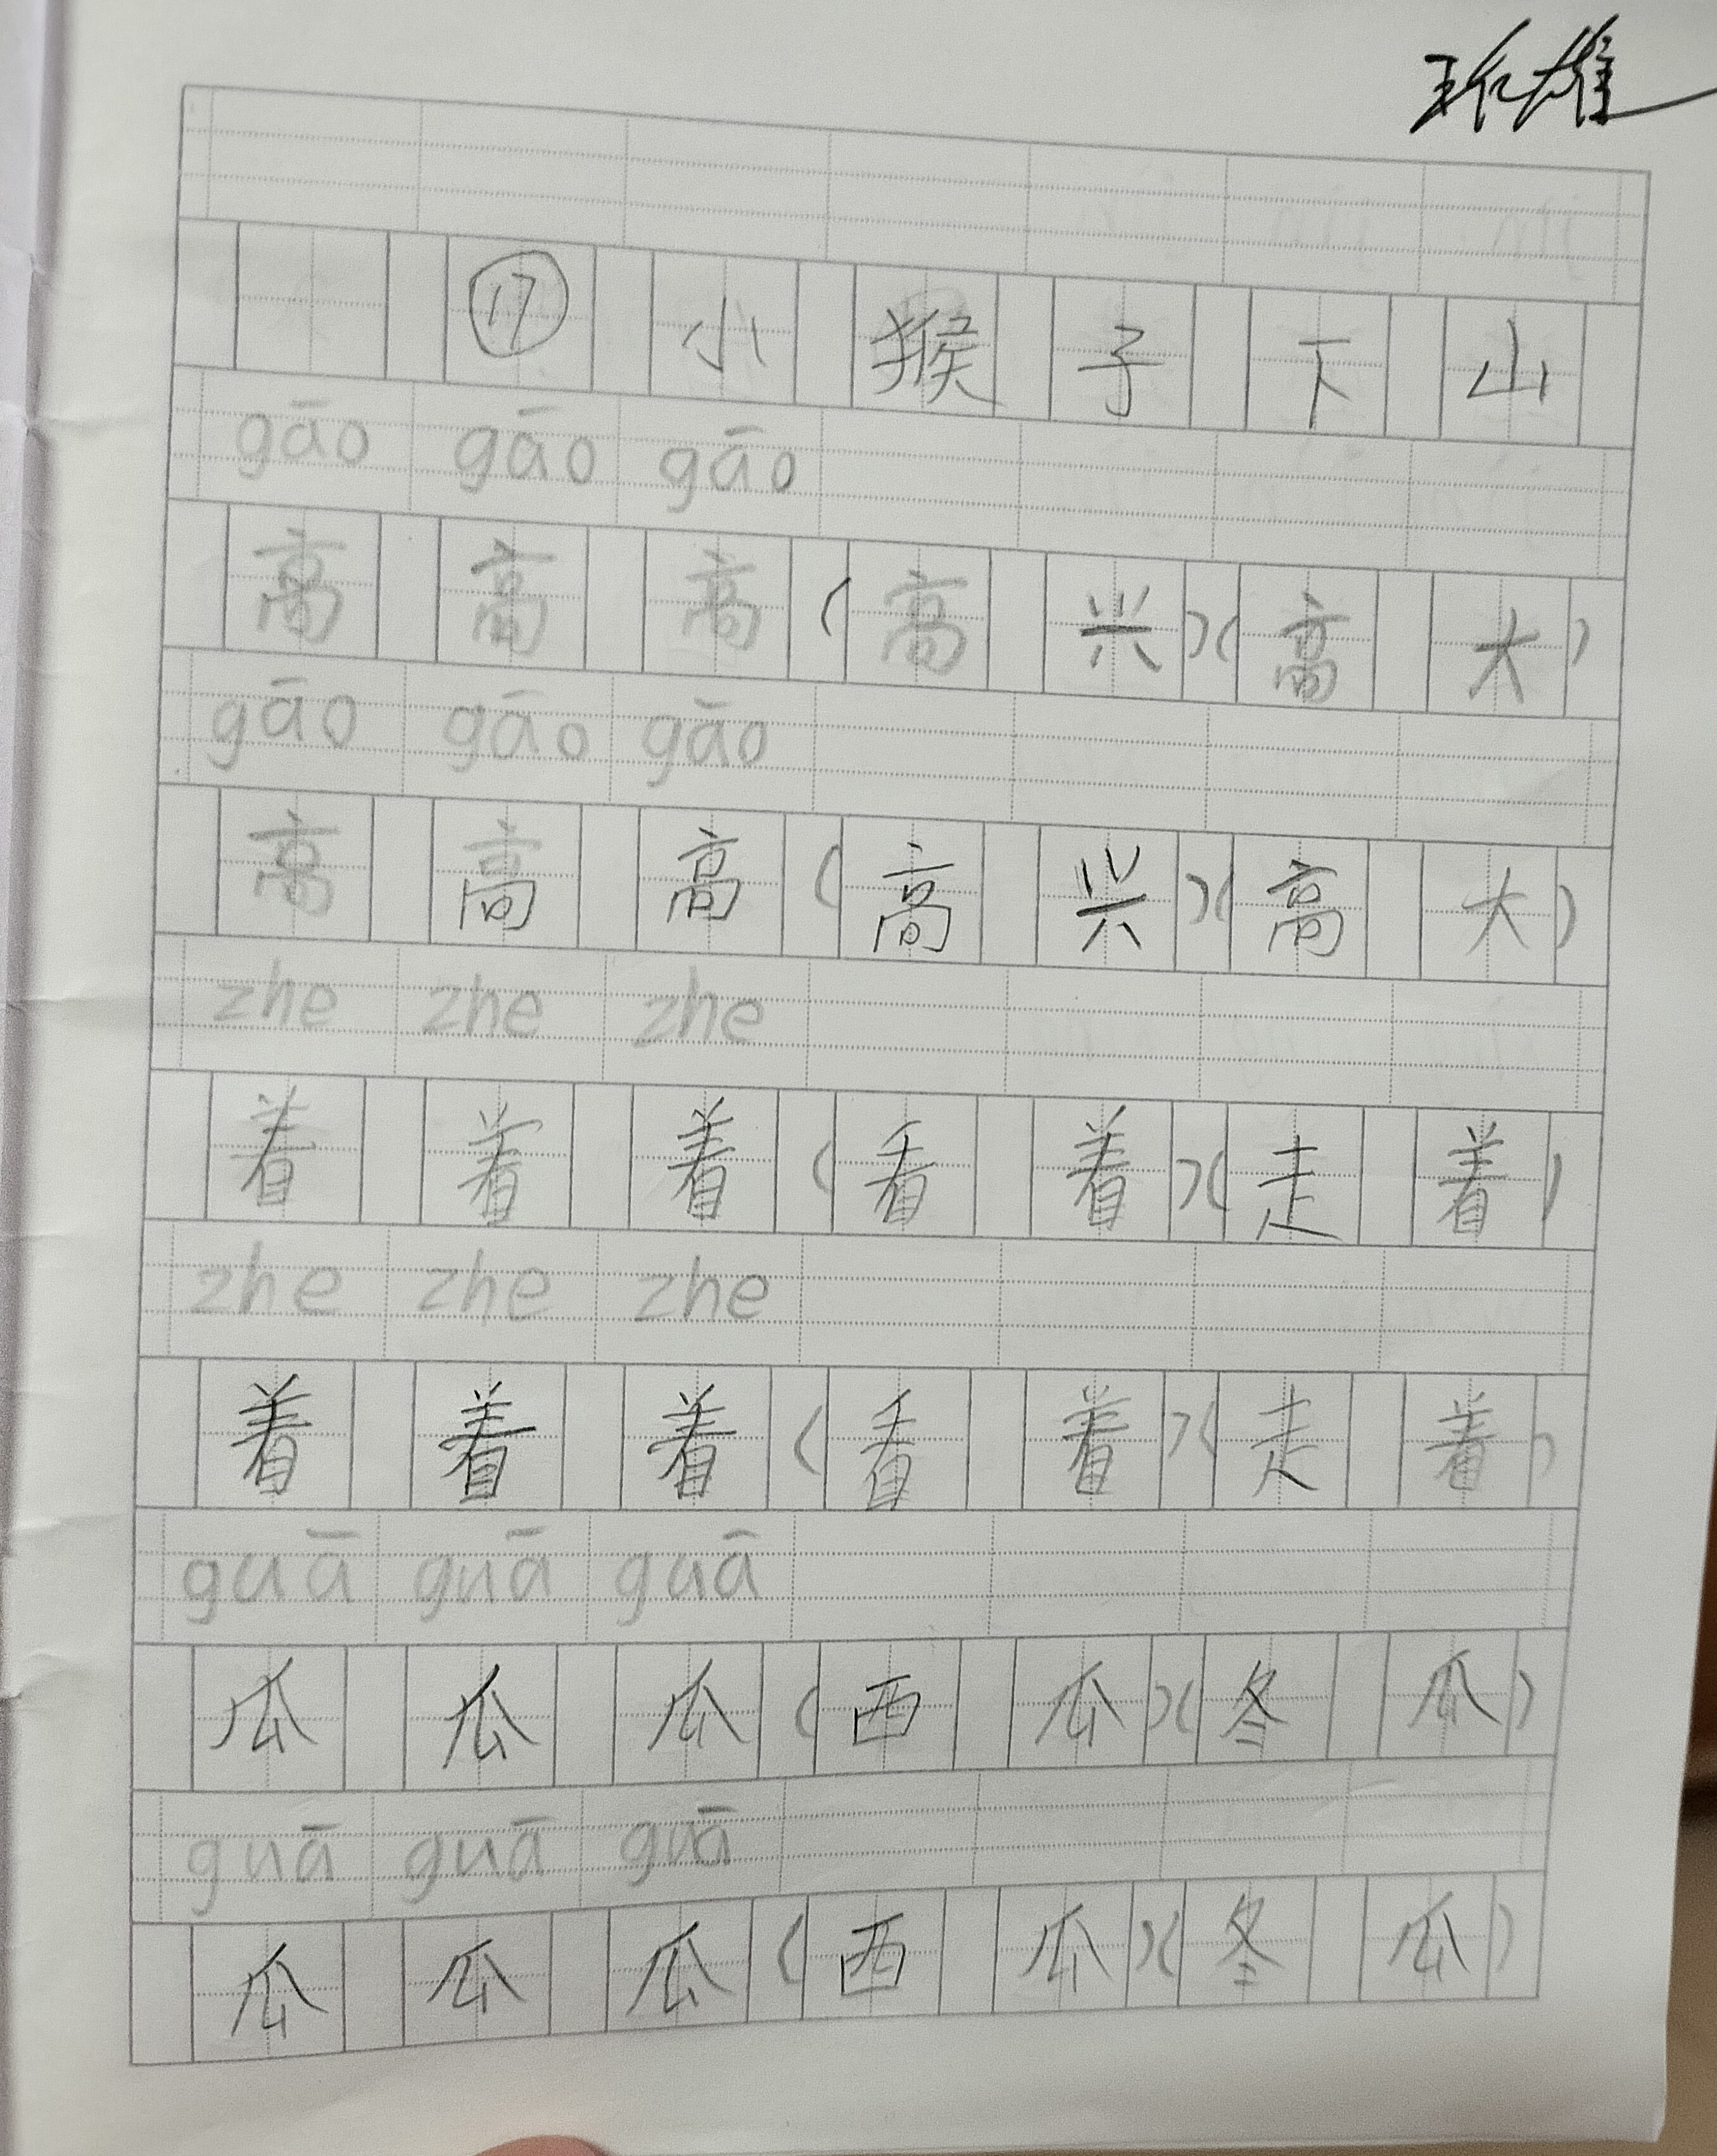 ⑰小猴子下山
gāo gāo gāo
高高高(高兴)(高大)
gāo gāo gāo
高高高(高兴)(高大)
zhe zhe zhe
着着着(看着)(走着)
zhe zhe zhe
着着着(看着)(走着)
guā guā guā
瓜瓜瓜(西瓜)(冬瓜)
guā guā guā
瓜瓜瓜(西瓜)(冬瓜)